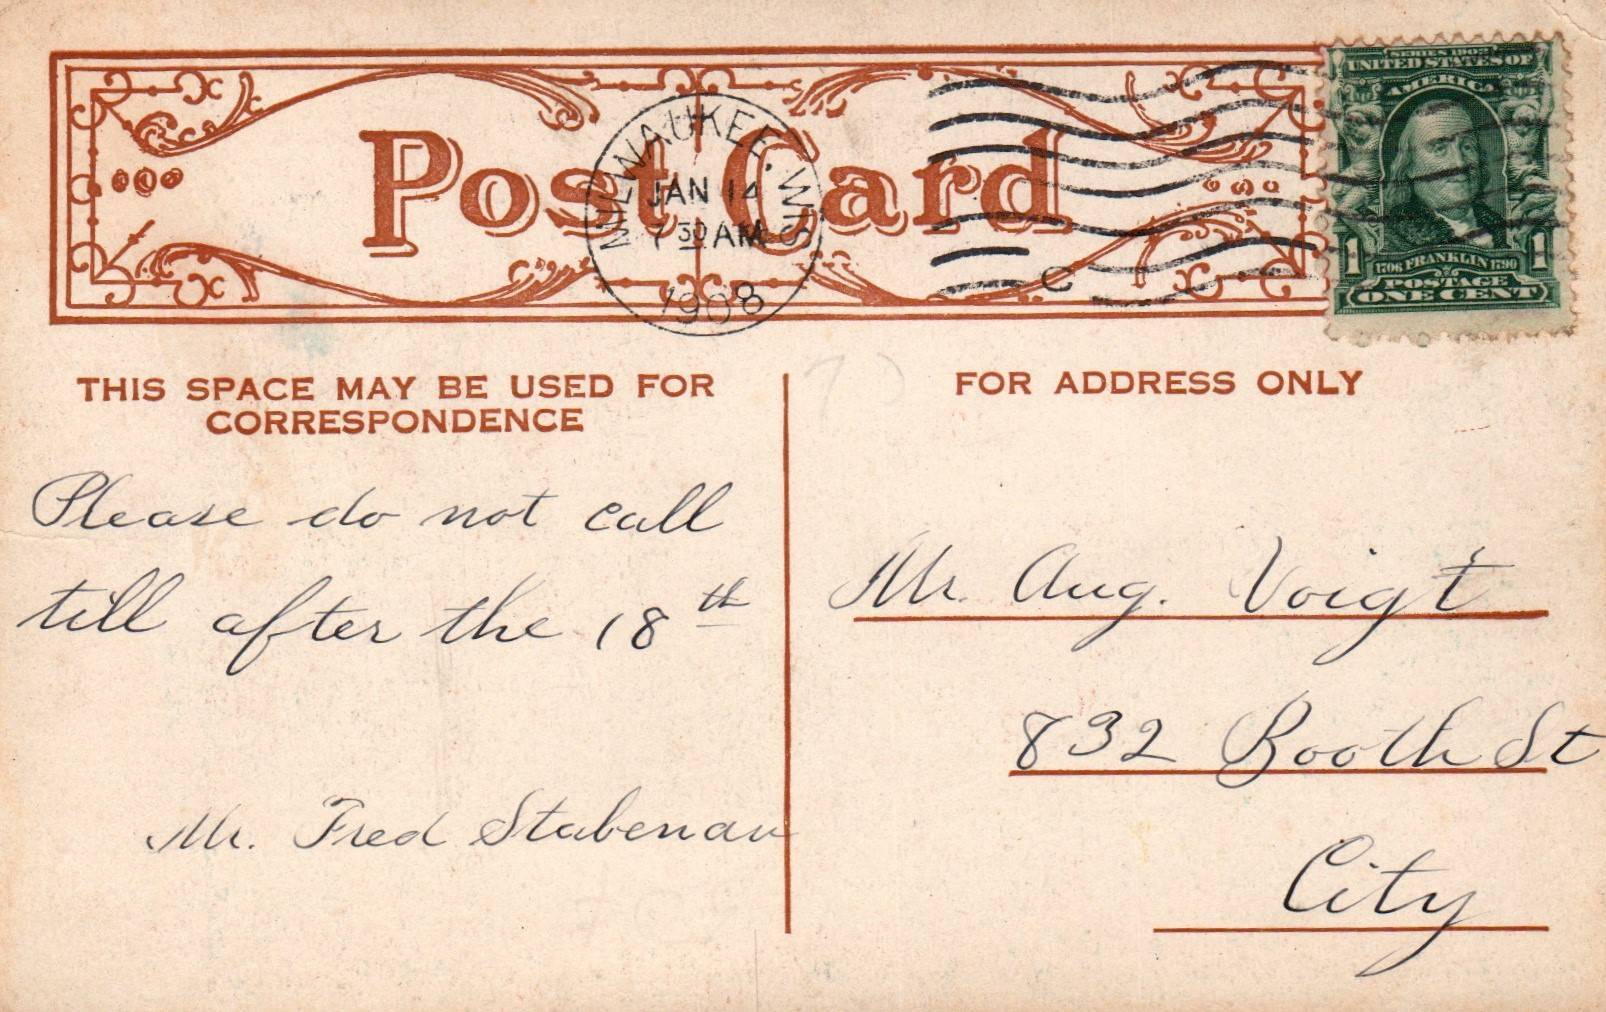 Post Card
MILWAUKEE, WIS
JAN 14
7 30 AM
1908
SERIES 1902
UNITED STATES OF
AMERICA
1 1
1706 FRANKLIN 1790
POSTAGE
ONE CENT
THIS SPACE MAY BE USED FOR
CORRESPONDENCE
Please do not call
till after the 18th
Mr. Fred Stabenau
FOR ADDRESS ONLY
Mr. Aug. Voigt
832 Booth St
City